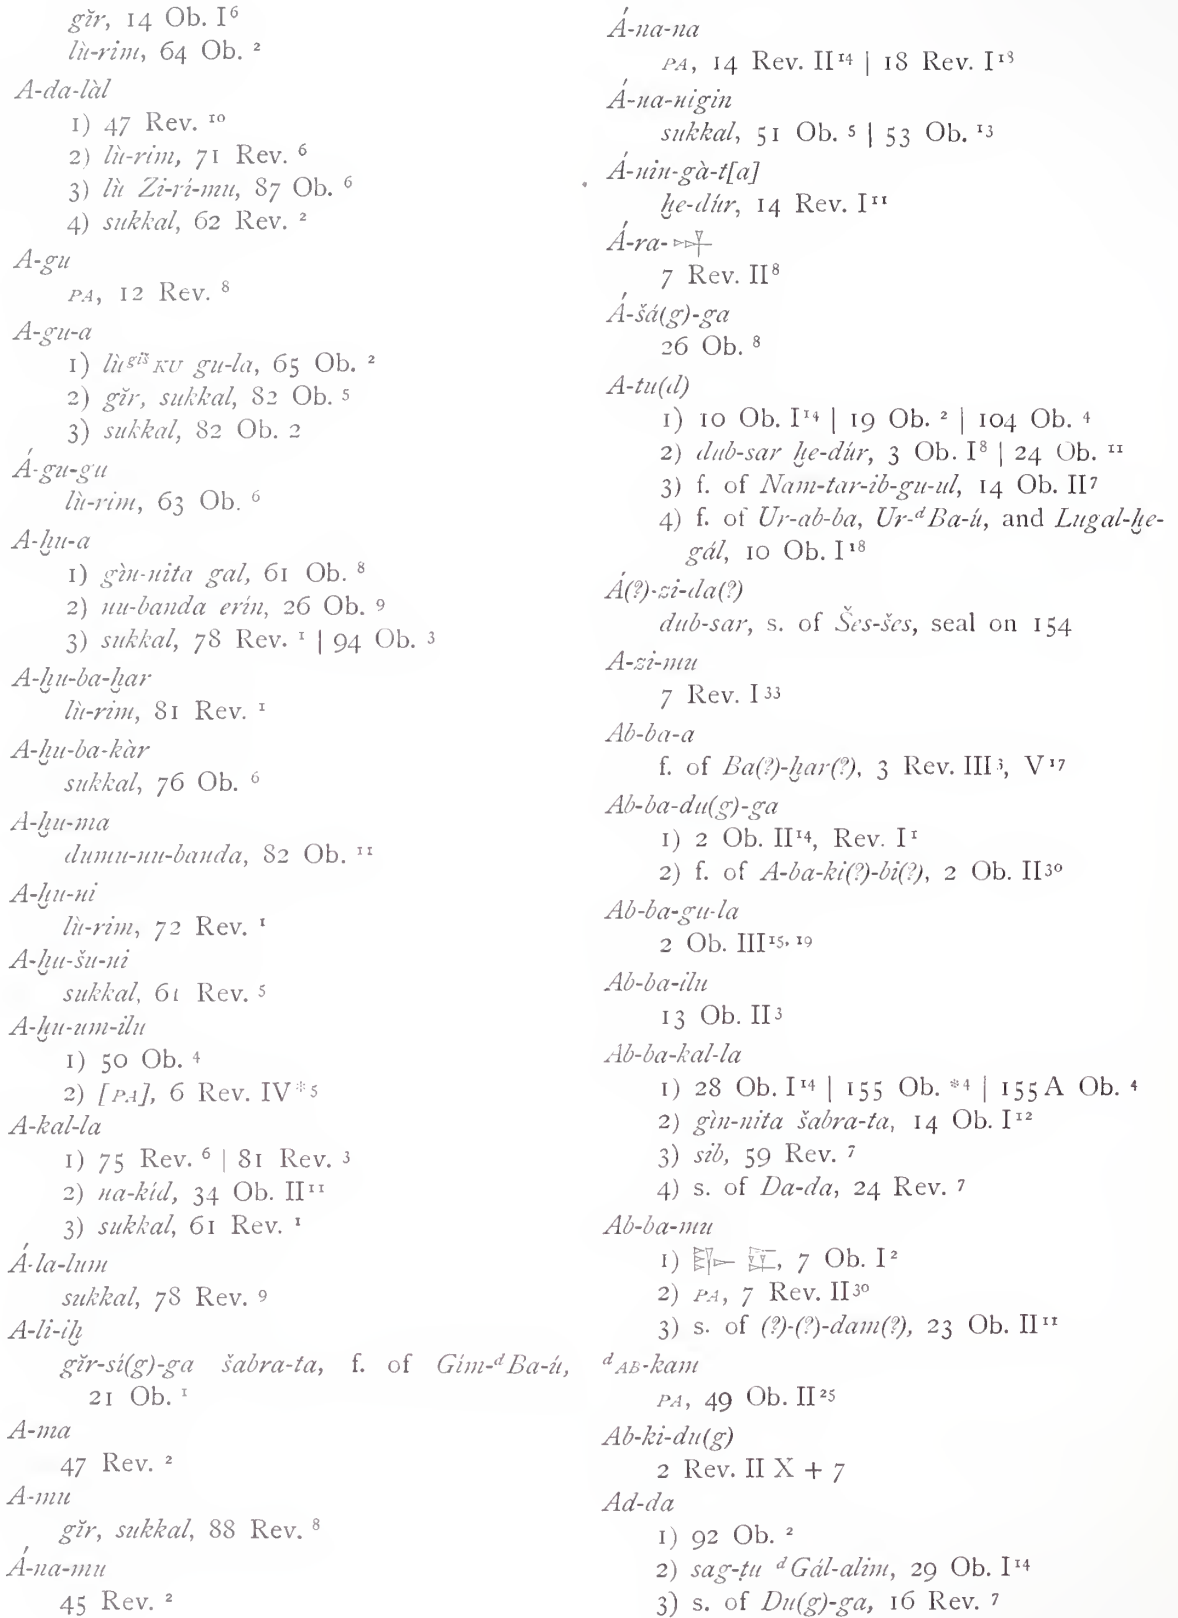 gĭr, 14 Ob. I⁶
lù-rim, 64 Ob. ²
A-da-làl
1) 47 Rev. ¹⁰
2) lù-rim, 71 Rev. ⁶
3) lù Zi-rí-mu, 87 Ob. ⁶
4) sukkal, 62 Rev. ²
A-gu
PA, 12 Rev. ⁸
A-gu-a
1) lù ᵍⁱˢ̌ KU gu-la, 65 Ob. ²
2) gĭr, sukkal, 82 Ob. ⁵
3) sukkal, 82 Ob. 2
Á-gu-gu
lù-rim, 63 Ob. ⁶
A-ḫu-a
1) gìn-nita gal, 61 Ob. ⁸
2) nu-banda erín, 26 Ob. ⁹
3) sukkal, 78 Rev. ¹ | 94 Ob. ³
A-ḫu-ba-ḫar
lù-rim, 81 Rev. ¹
A-ḫu-ba-kàr
sukkal, 76 Ob. ⁶
A-ḫu-ma
dumu-nu-banda, 82 Ob. ¹¹
A-ḫu-ni
lù-rim, 72 Rev. ¹
A-ḫu-šu-ni
sukkal, 61 Rev. ⁵
A-ḫu-um-ilu
1) 50 Ob. ⁴
2) [PA], 6 Rev. IV*⁵
A-kal-la
1) 75 Rev. ⁶ | 81 Rev. ³
2) na-kíd, 34 Ob. II¹¹
3) sukkal, 61 Rev. ¹
Á-la-lum
sukkal, 78 Rev. ⁹
A-li-iḫ
gĭr-sí(g)-ga šabra-ta, f. of Gím-ᵈBa-ú,
21 Ob. ¹
A-ma
47 Rev. ²
A-mu
gĭr, sukkal, 88 Rev. ⁸
Á-na-mu
45 Rev. ²
Á-na-na
PA, 14 Rev. II¹⁴ | 18 Rev. I¹³
Á-na-nigin
sukkal, 51 Ob. ⁵ | 53 Ob. ¹³
Á-nin-gà-t[a]
ḫe-dúr, 14 Rev. I¹¹
Á-ra-
7 Rev. II⁸
Á-šá(g)-ga
26 Ob. ⁸
A-tu(d)
1) 10 Ob. I¹⁴ | 19 Ob. ² | 104 Ob. ⁴
2) dub-sar ḫe-dúr, 3 Ob. I⁸ | 24 Ob. ¹¹
3) f. of Nam-tar-ib-gu-ul, 14 Ob. II⁷
4) f. of Ur-ab-ba, Ur-ᵈBa-ú, and Lugal-ḫe-
gál, 10 Ob. I¹⁸
Á(?)-zi-da(?)
dub-sar, s. of Šeš-šeš, seal on 154
A-zi-mu
7 Rev. I³³
Ab-ba-a
f. of Ba(?)-ḫar(?), 3 Rev. III³, V¹⁷
Ab-ba-du(g)-ga
1) 2 Ob. II¹⁴, Rev. I¹
2) f. of A-ba-ki(?)-bi(?), 2 Ob. II³⁰
Ab-ba-gu-la
2 Ob. III¹⁵, ¹⁹
Ab-ba-ilu
13 Ob. II³
Ab-ba-kal-la
1) 28 Ob. I¹⁴ | 155 Ob. *⁴ | 155A Ob. ⁴
2) gìn-nita šabra-ta, 14 Ob. I¹²
3) sib, 59 Rev. ⁷
4) s. of Da-da, 24 Rev. ⁷
Ab-ba-mu
1) , 7 Ob. I²
2) PA, 7 Rev. II³⁰
3) s. of (?)-(?)-dam(?), 23 Ob. II¹¹
ᵈAB-kam
PA, 49 Ob. II²⁵
Ab-ki-du(g)
2 Rev. II X + 7
Ad-da
1) 92 Ob. ²
2) sag-ṭu ᵈGál-alim, 29 Ob. I¹⁴
3) s. of Du(g)-ga, 16 Rev. ⁷